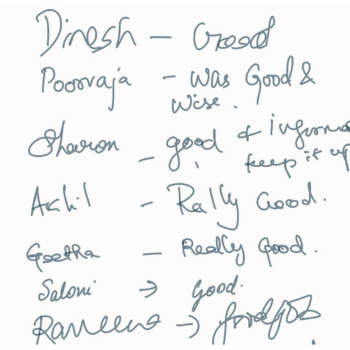 Dinesh - Good
Poorvaja - Was Good &
Wise.
Sharon - good & informa
keep it up
Akhil - Really Good.
Geetha - Really Good.
Saloni → Good.
Rameena →